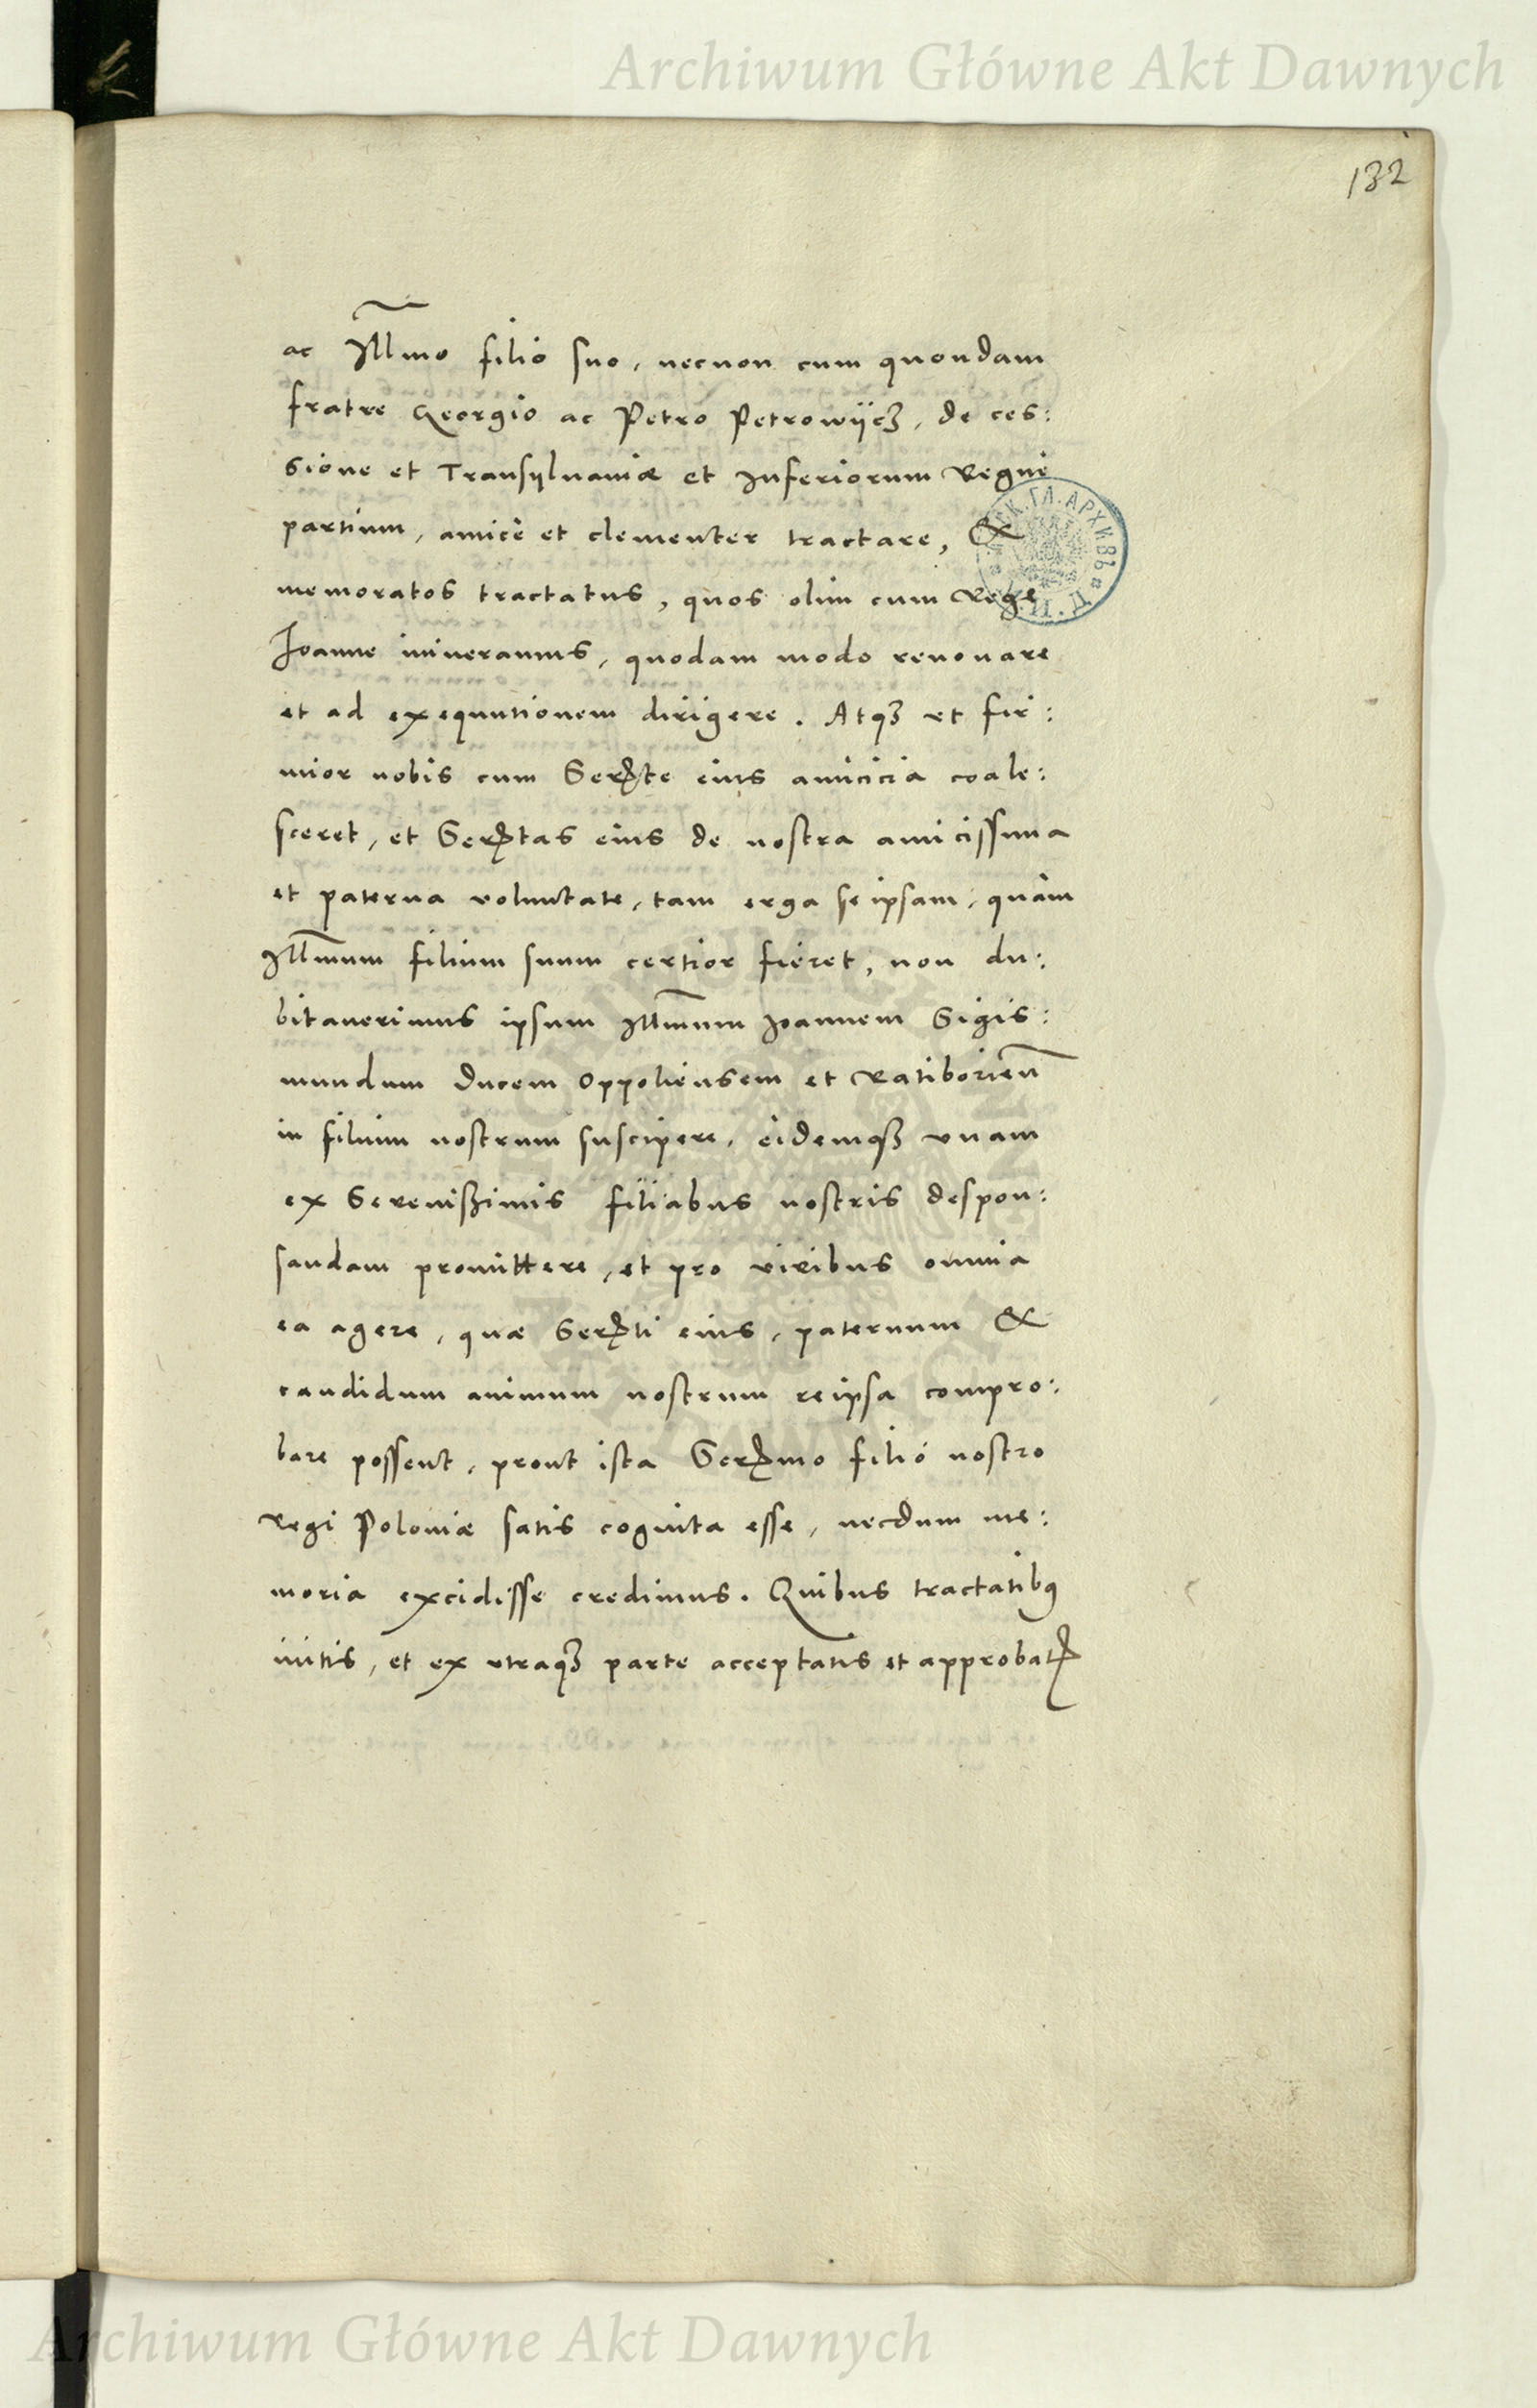 Archiwum Główne Akt Dawnych
132
ac Illmo filio suo, necnon cum quondam
fratre Georgio ac Petro Petrowijcz, de ces:
sione et Transyluaniæ et Inferiorum Regni
partium, amicè et clementer tractare, &
memoratos tractatus, quos olim cum Rege
Joanne iniveramus, quodam modo renouare
et ad exequutionem dirigere. Atqȝ et fir:
mior nobis cum Serte eius amicicia coale:
sceret, et Sertas eius de nostra amicissima
et paterna voluntate, tam erga se ipsam, quàm
Illmum filium suum certior fieret, non du:
bitauerimus ipsum Illmum Joannem Sigis:
mundum Ducem Oppoliensem et Ratiborien
in filium nostrum suscipere, eidemqȝ vnam
ex Sereniszimis filiabus nostris despon:
sandam promittere, et pro viribus omnia
ea agere, quæ Serti eius, paternum &
candidum animum nostrum reipsa compro:
bare possent, prout ista Sermo filio nostro
Regi Poloniæ satis cognita esse, necdum me:
moria excidisse credimus. Quibus tractatibꝰ
initis, et ex vtraqȝ parte acceptatis et approbatis
Archiwum Główne Akt Dawnych